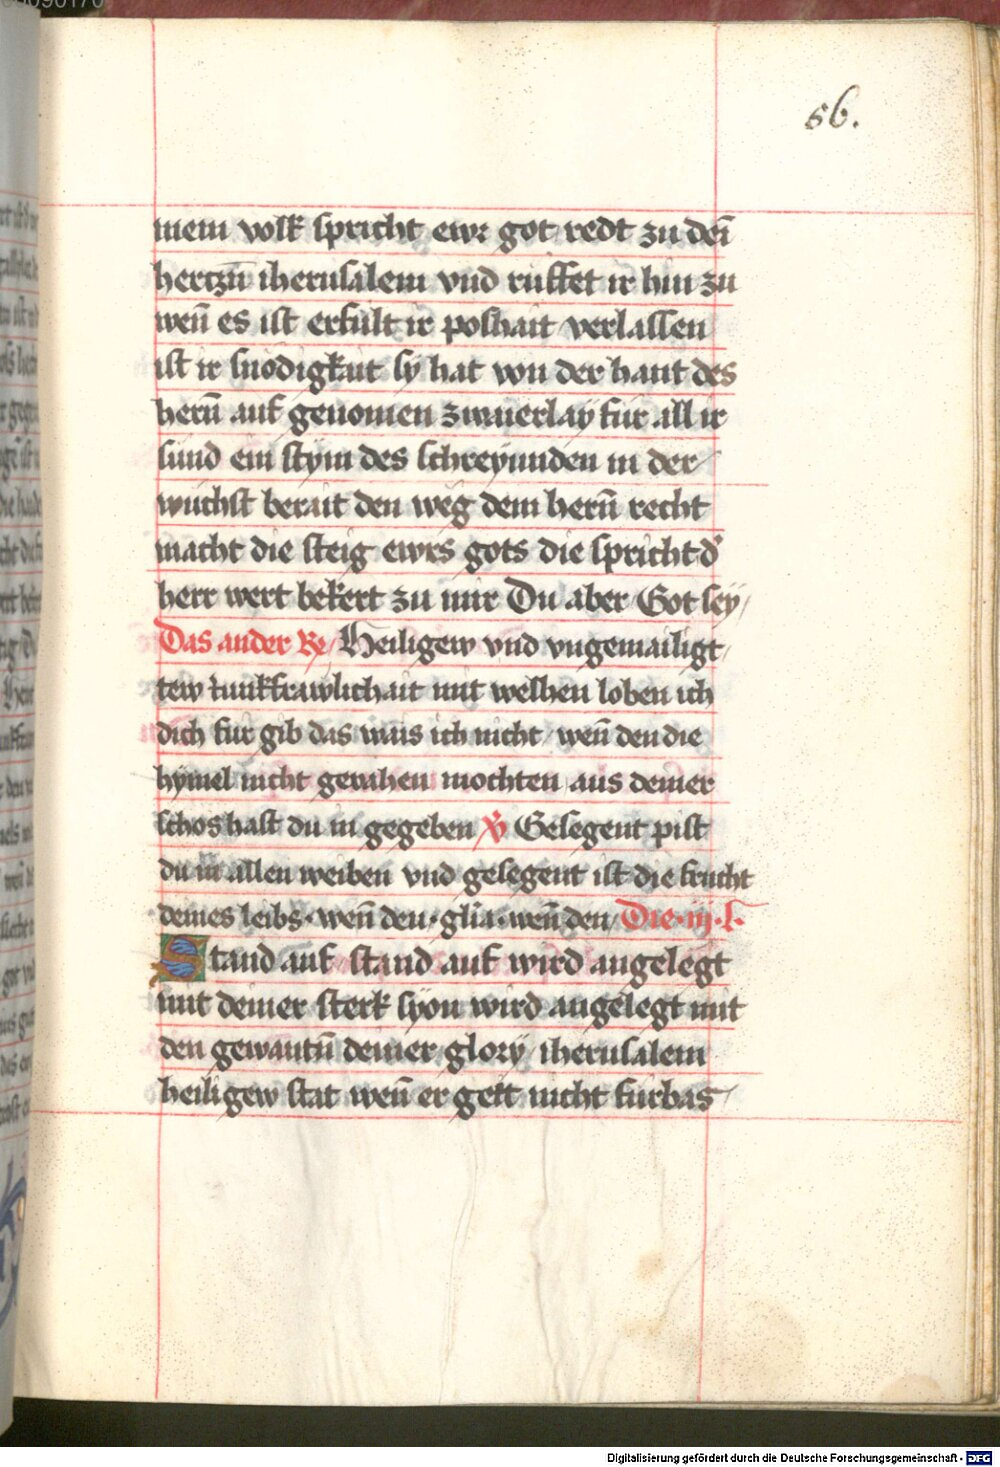 56.
mein volk spricht ewr got redt zu deī
hertzn̄ iherusalem vnd rüffet ir hin zu
wen̄ es ist erfult ir poshait verlassen
ist ir snödigkait sy hat von der hant des
hern̄ auf genomen zwaierlay für all ir
sünd ein stym des schreyunden in der
wüchst berait den weg dem hern̄ recht
macht die steig ewrs gots die spricht d'
herr wert bekert zu mir Du aber Got sey/
Das ander R/ Heiligew vnd vngemailigt/
tew iunkfrawlichait mit welhen loben ich
dich für gib das wais ich nicht / wen̄ den die
hymel nicht gevahen mochten aus deiner
schos hast du in gegeben V Gesegent pist
du in allen weiben vnd gesegent ist die frucht
deines leibs · wen̄ den · gl̄ia · wen̄ den / Die · iij · l̄ ·
Stand auf stand auf wird angelegt
mit deiner sterk syon wird angelegt mit
den gewantn̄ deiner glory / iherusalem
heiligew stat wen̄ er gett nicht fürbas
Digitalisierung gefördert durch die Deutsche Forschungsgemeinschaft - DFG